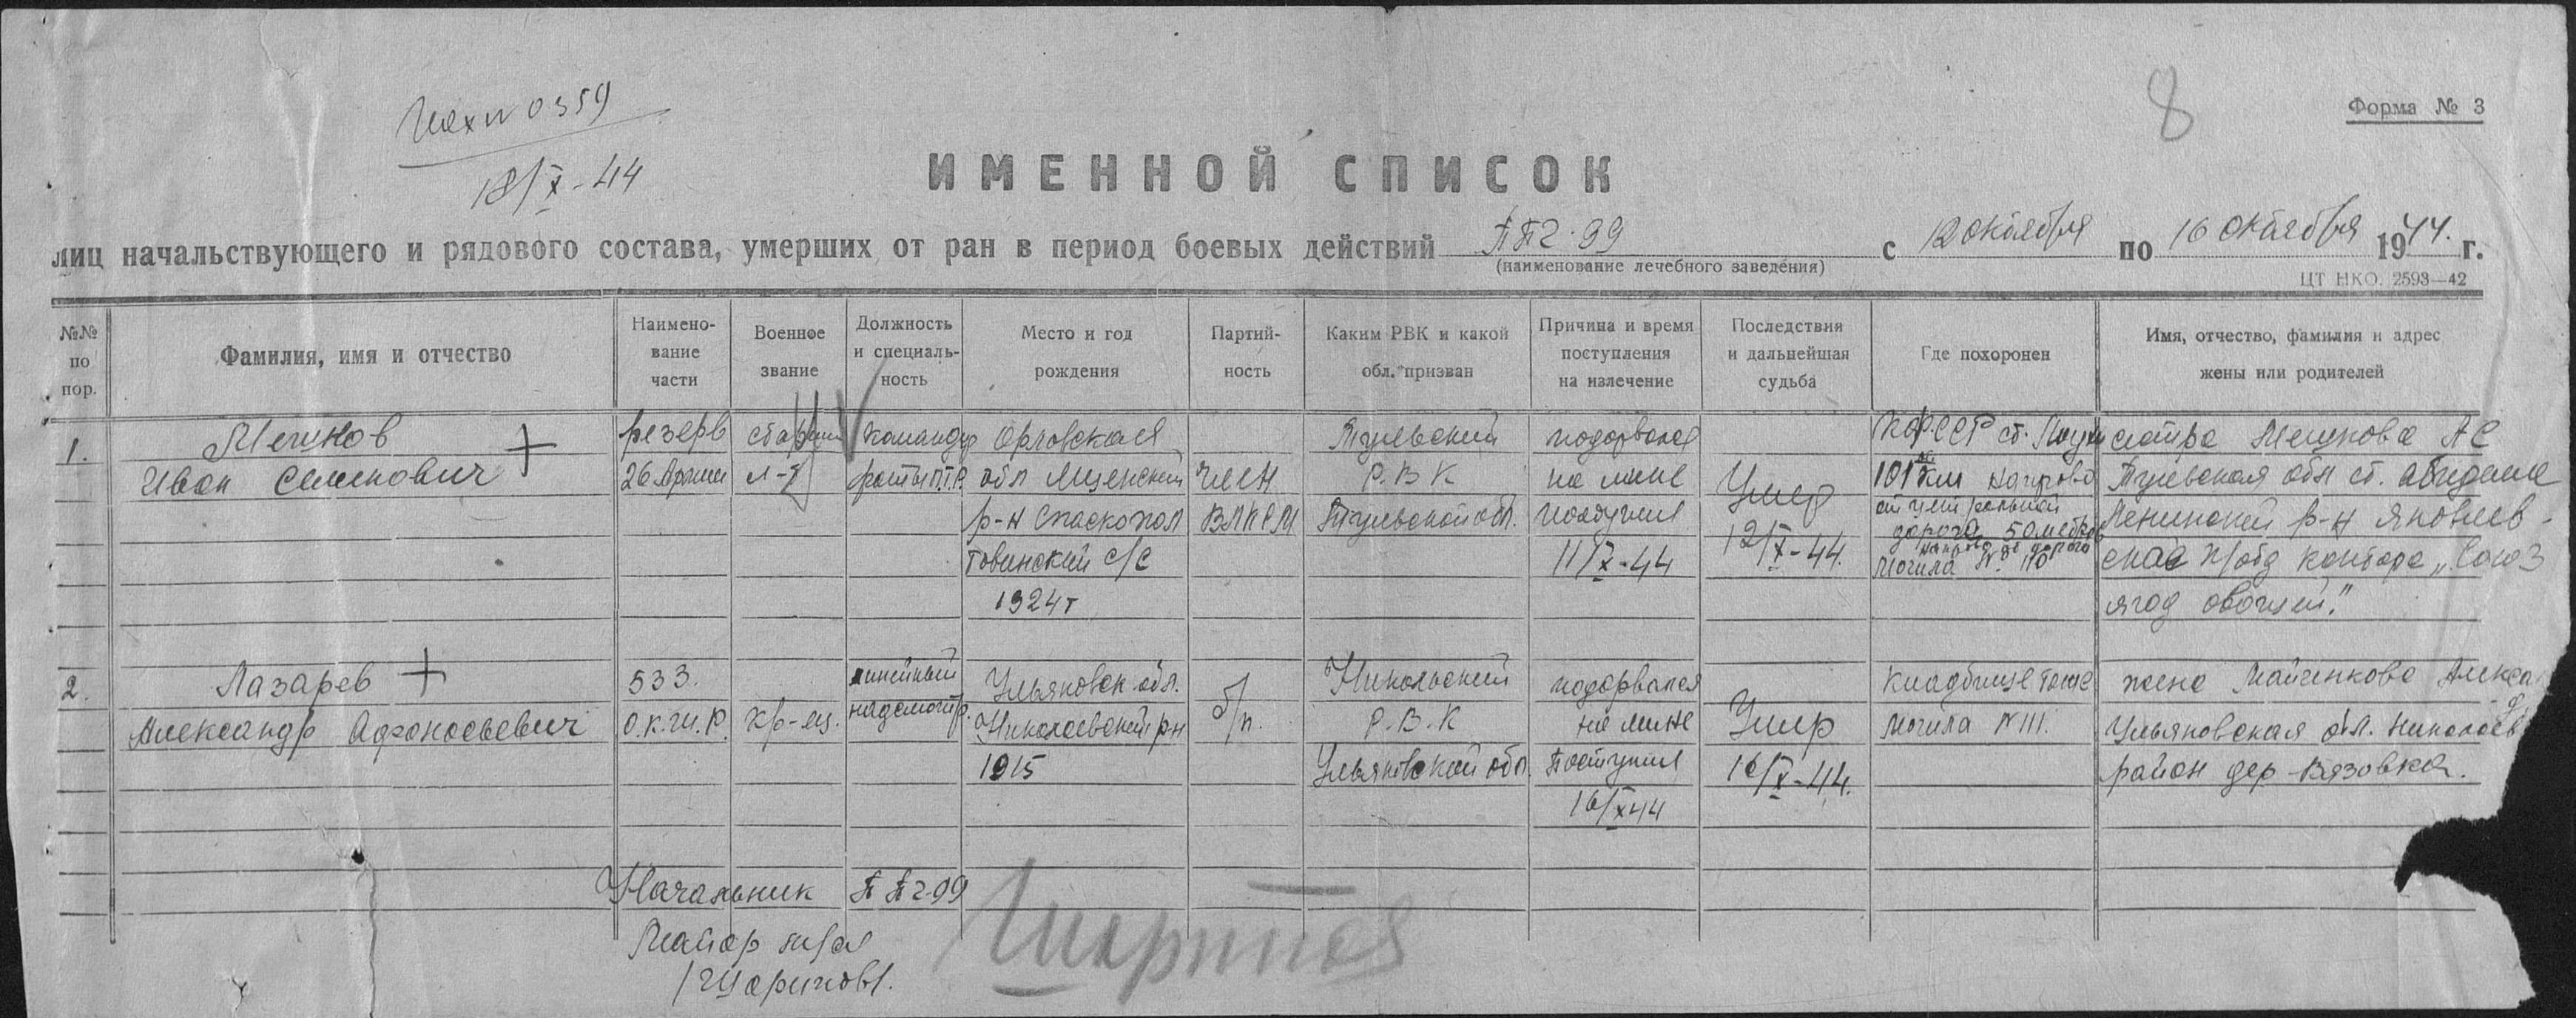 Исх № 0359
18/X-44
8
Форма № 3
ИМЕННОЙ СПИСОК
лиц начальствующего и рядового состава, умерших от ран в период боевых действий ППГ-99 с 12 октября по 16 октября 1944 г.
(наименование лечебного заведения)
ЦТ НКО. 2593—42
№№ по пор.
Фамилия, имя и отчество
Наимено-
вание
части
Военное
звание
Должность
и специаль-
ность
Место и год
рождения
Партий-
ность
Каким РВК и какой
обл. призван
Причина и время
поступления
на излечение
Последствия
и дальнейшая
судьба
Где похоронен
Имя, отчество, фамилия и адрес
жены или родителей
1.
Иван Семенович
резерв
26 Армии
л-т
командир
роты П.Т.Р.
Орловская
обл Мценский
р-н
с/с
1924 г
член
ВЛКСМ
Тульский
Р.В.К
Тульской обл.
подорвался
на мине
поступил
11/X-44
Умер
12/X-44.
КФССР ст.
101 км направо
от центральной
дороги 50 метров
могила № 110
сестра
Тульская обл ст.
Ленинский р-н Яковлев-
контора „Союз
ягод овощей."
2.
Лазарев
Александр Афонасьевич
533.
О.К.Ш.Р.
кр-ец.
линейный
надсмотр.
Ульяновск. обл.
Николаевский р-н
1915
б/п.
Никольский
Р.В.К
Ульяновской обл.
подорвался
на мине
Поступил
16/X 44
Умер
16/X-44.
Кладбище тоже
могила № 111.
жена
Ульяновская обл. Николаев
район дер-Вязовка.
Начальник ППГ-99
Майор м/с